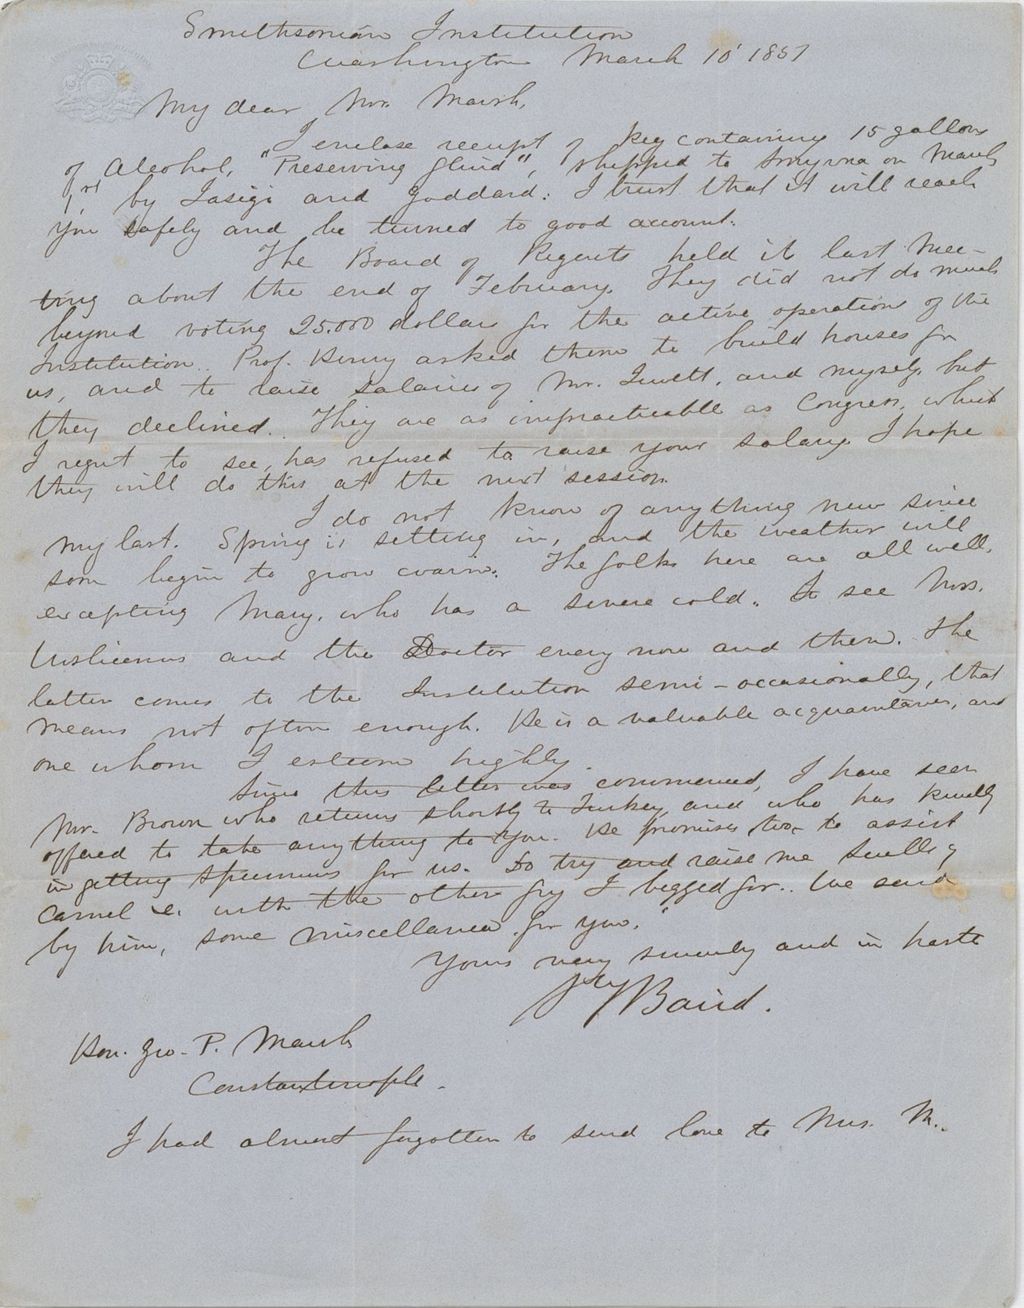 Smithsonian Institution
Washington March 10 1851
My dear Mr. Marsh,
I enclose receipt of keg containing 15 gallons
of Alcohol, "Preserving fluid", shipped to Smyrna on March
1st by Iasigi and Goddard. I trust that it will reach
you safely and be turned to good account.
The Board of Regents held it last mee-
ting about the end of February. They did not do much
beyond voting 25.000 dollars for the active operations of the
Institution. Prof. Henry asked them to build houses for
us, and to raise salaries of Mr. Jewett, and myself, but
they declined. They are as impracticable as Congress, which
I regret to see, has refused to raise your salary. I hope
they will do this at the next session.
I do not know of anything new since
my last. Spring is setting in, and the weather will
soon begin to grow warm. The folks here are all well,
excepting Mary, who has a severe cold. I see Mrs.
Wislicenus and the Doctor every now and then. The
latter comes to the Institution semi-occasionally, that
means not often enough. He is a valuable acquaintance, and
one whom I esteem highly.
Since this letter was commenced, I have seen
Mr. Brown who returns shortly to Turkey, and who has kindly
offered to take anything to you. He promises, too, to assist
in getting specimens for us. Do try and raise me skulls of
camel &c. with the other fry I begged for. We send
by him, some miscellanea for you.
Yours very sincerely and in haste
Baird.
Hon. Geo. P. Marsh
Constantinople.
I had almost forgotten to send love to Mrs. M.